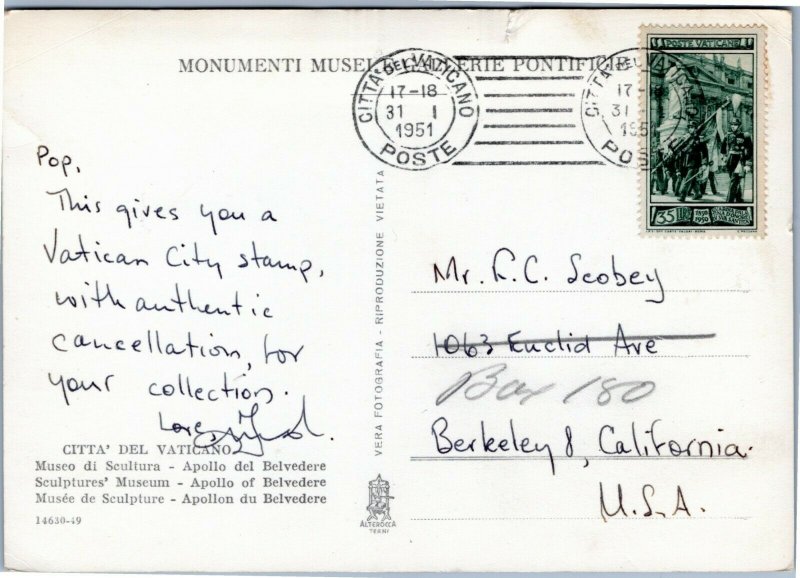 MONUMENTI MUSEI E GALLERIE PONTIFICIE
CITTÀ DEL VATICANO
17-18
31 I
1951
POSTE
CITTÀ DEL VATICANO
17-18
31 I
1951
POSTE
POSTE VATICANE
35 LIRE 1850 1950
Pop,
This gives you a
Vatican City stamp,
with authentic
cancellation, for
your collection.
Love,
VERA FOTOGRAFIA - RIPRODUZIONE VIETATA
Mr. F. C. Scobey
1063 Euclid Ave
Box 180
Berkeley 8, California.
U.S.A.
CITTA' DEL VATICANO
Museo di Scultura - Apollo del Belvedere
Sculptures' Museum - Apollo of Belvedere
Musée de Sculpture - Apollon du Belvedere
14630-49
ALTEROCCA
TERNI